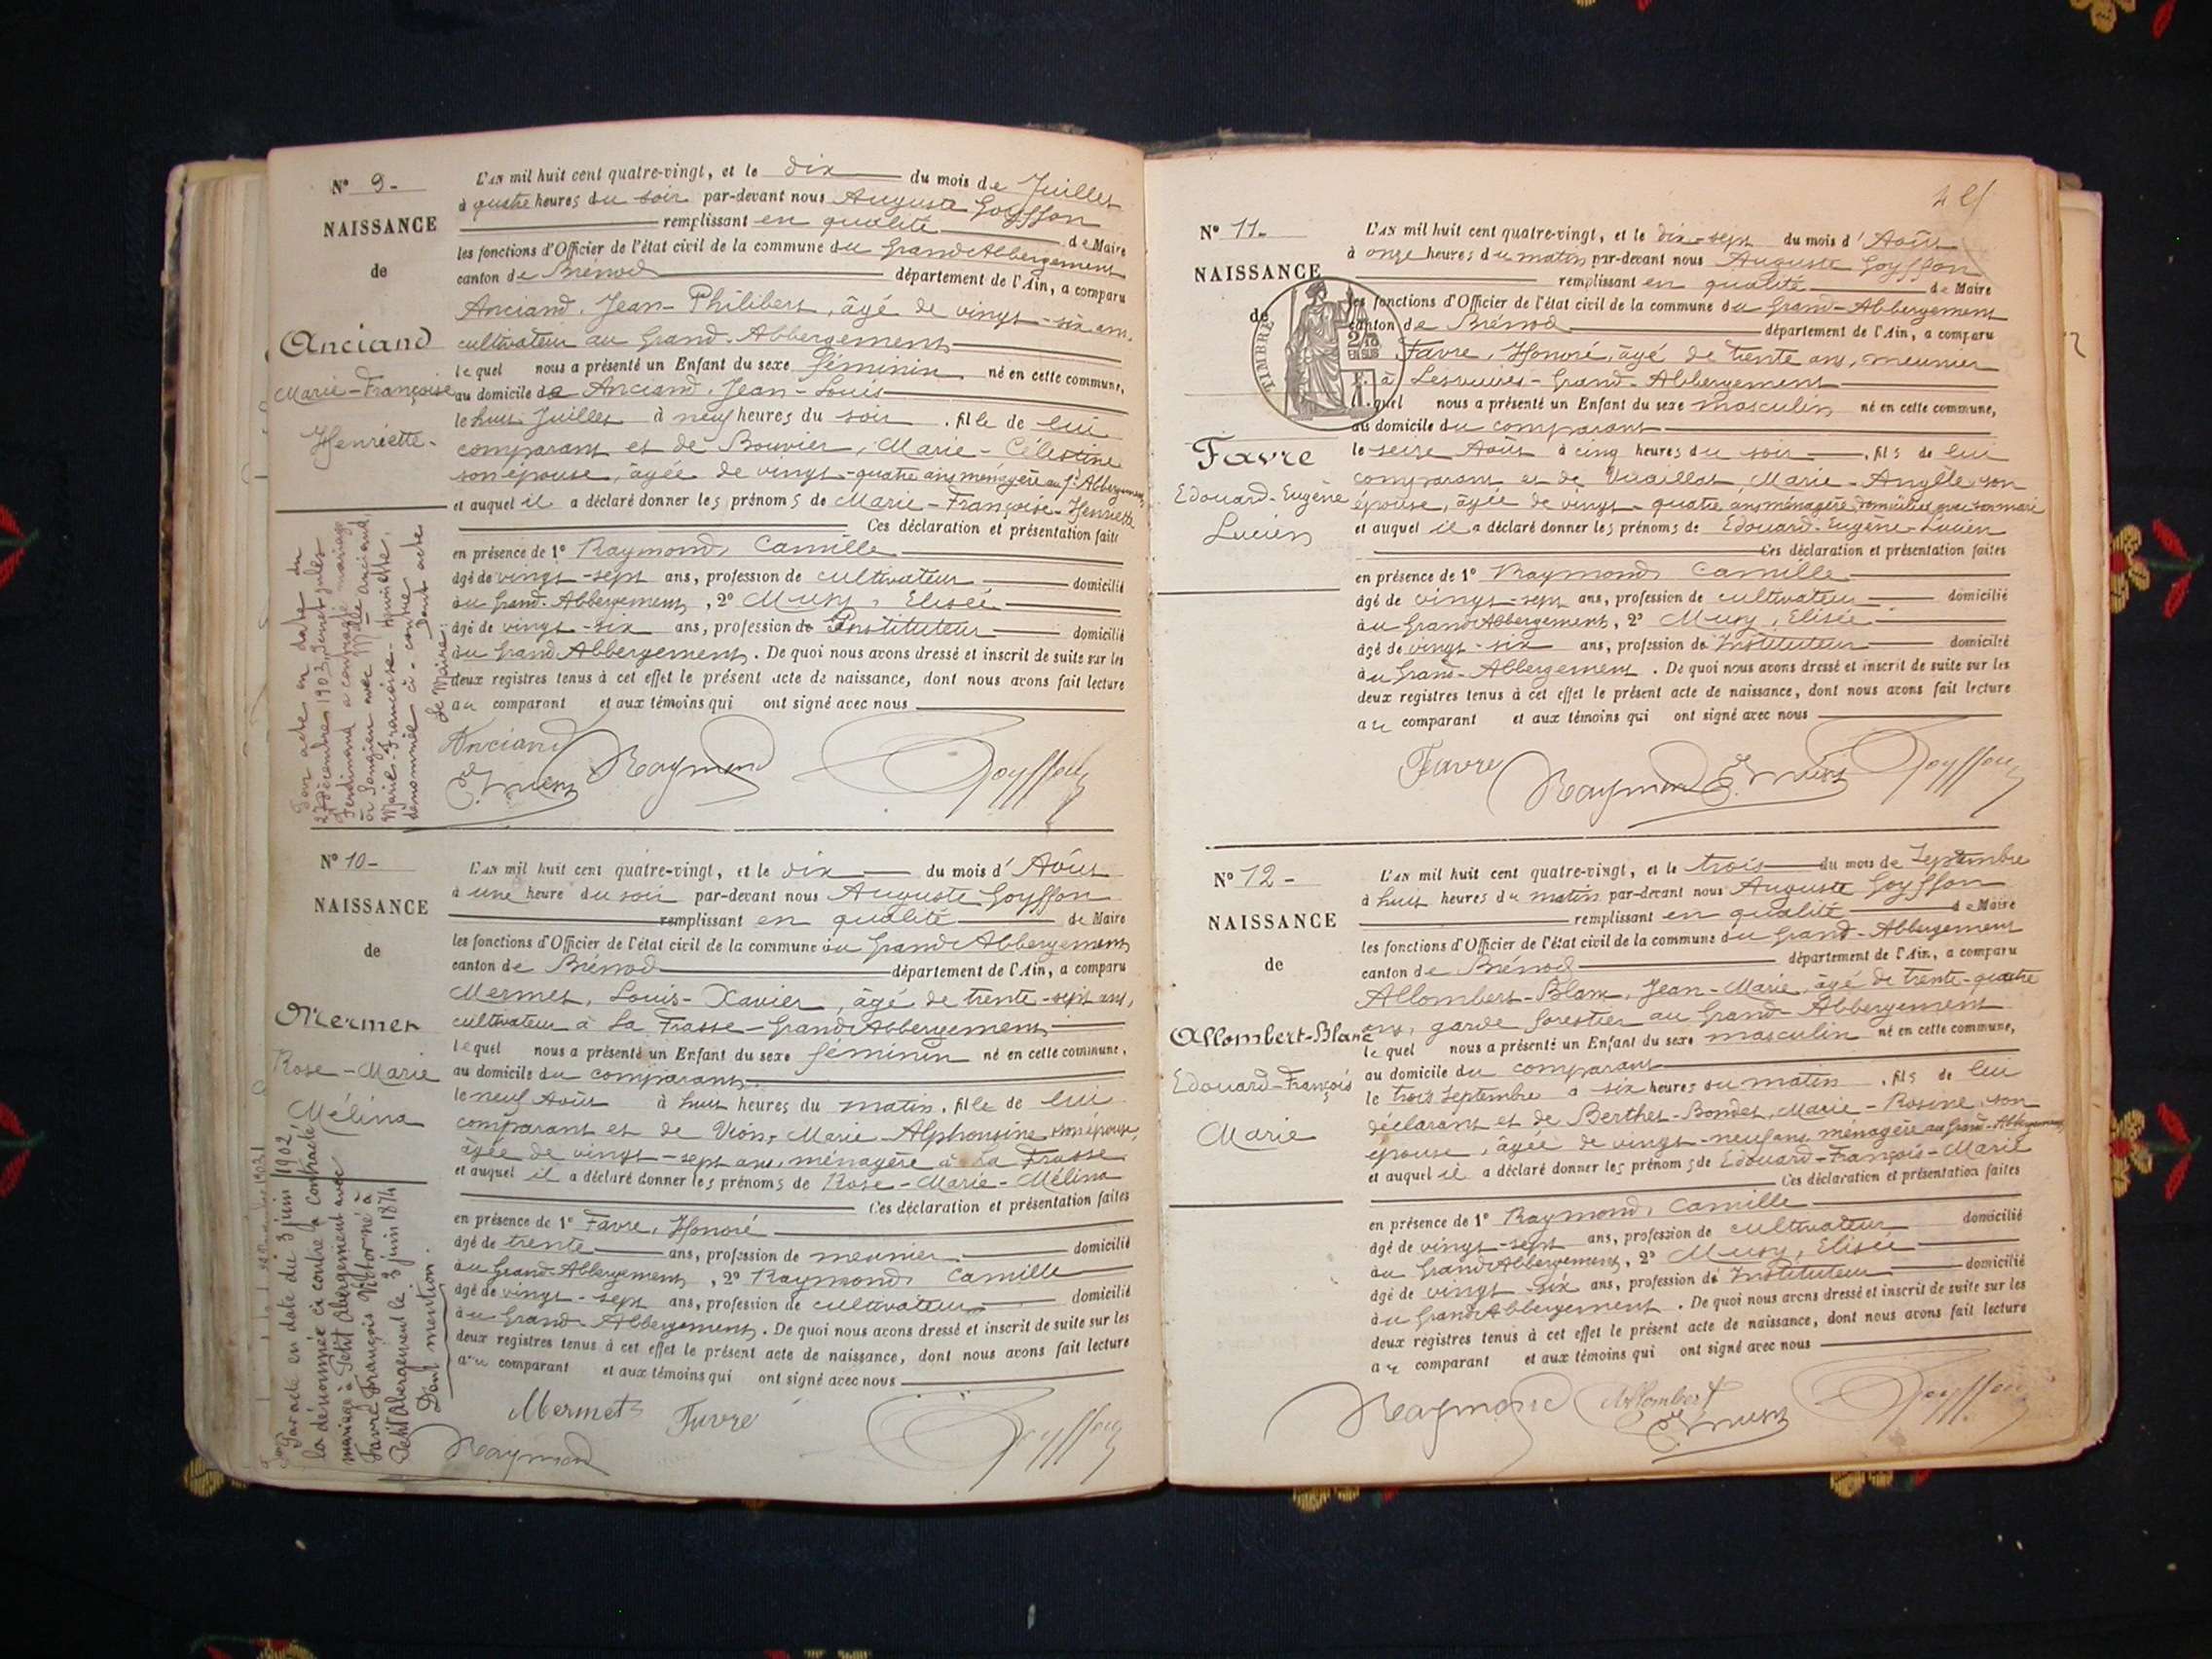 N° 9.-
NAISSANCE
de
Anciand
Marie-Françoise
Henriette.
L'AN mil huit cent quatre-vingt, et le dix du mois de Juillet
à quatre heures du soir par-devant nous Auguste Goyffon
remplissant en qualité de Maire
les fonctions d'Officier de l'état civil de la commune du Grand Abbergement
canton de Brénod département de l'Ain, a comparu
Anciand, Jean-Philibert, âgé de vingt-six ans,
cultivateur au Grand-Abbergement
lequel nous a présenté un Enfant du sexe féminin né en cette commune,
au domicile de Anciand, Jean-Louis
le huit Juillet à neuf heures du soir, fille de lui
comparant et de Bouvier, Marie-Célestine
son épouse, âgée de vingt-quatre ans ménagère au Gd Abbergement
et auquel il a déclaré donner les prénoms de Marie-Françoise-Henriette
Ces déclaration et présentation faites
en présence de 1° Raymond Camille
âgé de vingt-sept ans, profession de cultivateur domicilié
au Grand-Abbergement, 2° Musy, Elisée
âgé de vingt-six ans, profession de Instituteur domicilié
au Grand Abbergement. De quoi nous avons dressé et inscrit de suite sur les
deux registres tenus à cet effet le présent acte de naissance, dont nous avons fait lecture
au comparant et aux témoins qui ont signé avec nous
Anciand
E. Musy Raymond Goyffon
Par acte en date du
27 décembre 1903, Jules
Ferdinand a contracté mariage
à Songieu avec Mlle Anciand,
Marie-Françoise-Henriette,
dénommée ci-contre
dont acte
Le Maire
N° 10-
NAISSANCE
de
Mermet
Rose-Marie
Mélina
L'AN mil huit cent quatre-vingt, et le dix du mois d'Août
à une heure du soir par-devant nous Auguste Goyffon
remplissant en qualité de Maire
les fonctions d'Officier de l'état civil de la commune du Grand Abbergement
canton de Brénod département de l'Ain, a comparu
Mermet, Louis-Xavier, âgé de trente-sept ans,
cultivateur à La Frasse-Grand Abbergement
lequel nous a présenté un Enfant du sexe féminin né en cette commune,
au domicile du comparant
le neuf Août à huit heures du matin, fille de lui
comparant et de Vion, Marie-Alphonsine son épouse,
âgée de vingt-sept ans, ménagère à La Frasse
et auquel il a déclaré donner les prénoms de Rose-Marie-Mélina
Ces déclaration et présentation faites
en présence de 1° Favre, Honoré
âgé de trente ans, profession de meunier domicilié
au Grand-Abbergement, 2° Raymond Camille
âgé de vingt-sept ans, profession de cultivateur domicilié
au Grand-Abbergement. De quoi nous avons dressé et inscrit de suite sur les
deux registres tenus à cet effet le présent acte de naissance, dont nous avons fait lecture
au comparant et aux témoins qui ont signé avec nous
Mermet Favre
Raymond Goyffon
Par acte en date du 3 juin 1902,
la dénommée ci contre a contracté
mariage à Petit Abergement avec
Favre François Victor né à
Petit Abergement le 3 juin 1874
Dont mention.
N° 11.-
NAISSANCE
de
Favre
Edouard-Eugène
Lucien
TIMBRE
EN SUS
L'AN mil huit cent quatre-vingt, et le dix-sept du mois d'Août
à onze heures du matin par-devant nous Auguste Goyffon
remplissant en qualité de Maire
les fonctions d'Officier de l'état civil de la commune du Grand-Abbergement
canton de Brénod département de l'Ain, a comparu
Favre, Honoré, âgé de trente ans, meunier
à Grand-Abbergement
lequel nous a présenté un Enfant du sexe masculin né en cette commune,
au domicile du comparant
le seize Août à cinq heures du soir, fils de lui
comparant et de Marie-Angèle son
épouse, âgée de vingt-quatre ans ménagère domiciliée avec son mari
et auquel il a déclaré donner les prénoms de Edouard-Eugène-Lucien
Ces déclaration et présentation faites
en présence de 1° Raymond Camille
âgé de vingt-sept ans, profession de cultivateur domicilié
au Grand Abbergement, 2° Musy, Elisée
âgé de vingt-six ans, profession de Instituteur domicilié
au Grand-Abbergement. De quoi nous avons dressé et inscrit de suite sur les
deux registres tenus à cet effet le présent acte de naissance, dont nous avons fait lecture
au comparant et aux témoins qui ont signé avec nous
Favre Raymond E. Musy Goyffon
N° 12-
NAISSANCE
de
Allombert-Blanc
Edouard-François
Marie
L'AN mil huit cent quatre-vingt, et le trois du mois de Septembre
à huit heures du matin par-devant nous Auguste Goyffon
remplissant en qualité de Maire
les fonctions d'Officier de l'état civil de la commune du Grand-Abbergement
canton de Brénod département de l'Ain, a comparu
Allombert-Blanc, Jean-Marie, âgé de trente-quatre
ans, garde forestier au Grand-Abbergement
lequel nous a présenté un Enfant du sexe masculin né en cette commune,
au domicile du comparant
le trois Septembre à six heures du matin, fils de lui
déclarant et de Berthet-Bondet, Marie-Rosine son
épouse, âgée de vingt-neuf ans ménagère au Grand-Abbergement
et auquel il a déclaré donner les prénoms de Edouard-François-Marie
Ces déclaration et présentation faites
en présence de 1° Raymond, Camille
âgé de vingt-sept ans, profession de cultivateur domicilié
au Grand Abbergement, 2° Musy, Elisée
âgé de vingt-six ans, profession de Instituteur domicilié
au Grand Abbergement. De quoi nous avons dressé et inscrit de suite sur les
deux registres tenus à cet effet le présent acte de naissance, dont nous avons fait lecture
au comparant et aux témoins qui ont signé avec nous
Raymond Allombert Goyffon
E. Musy